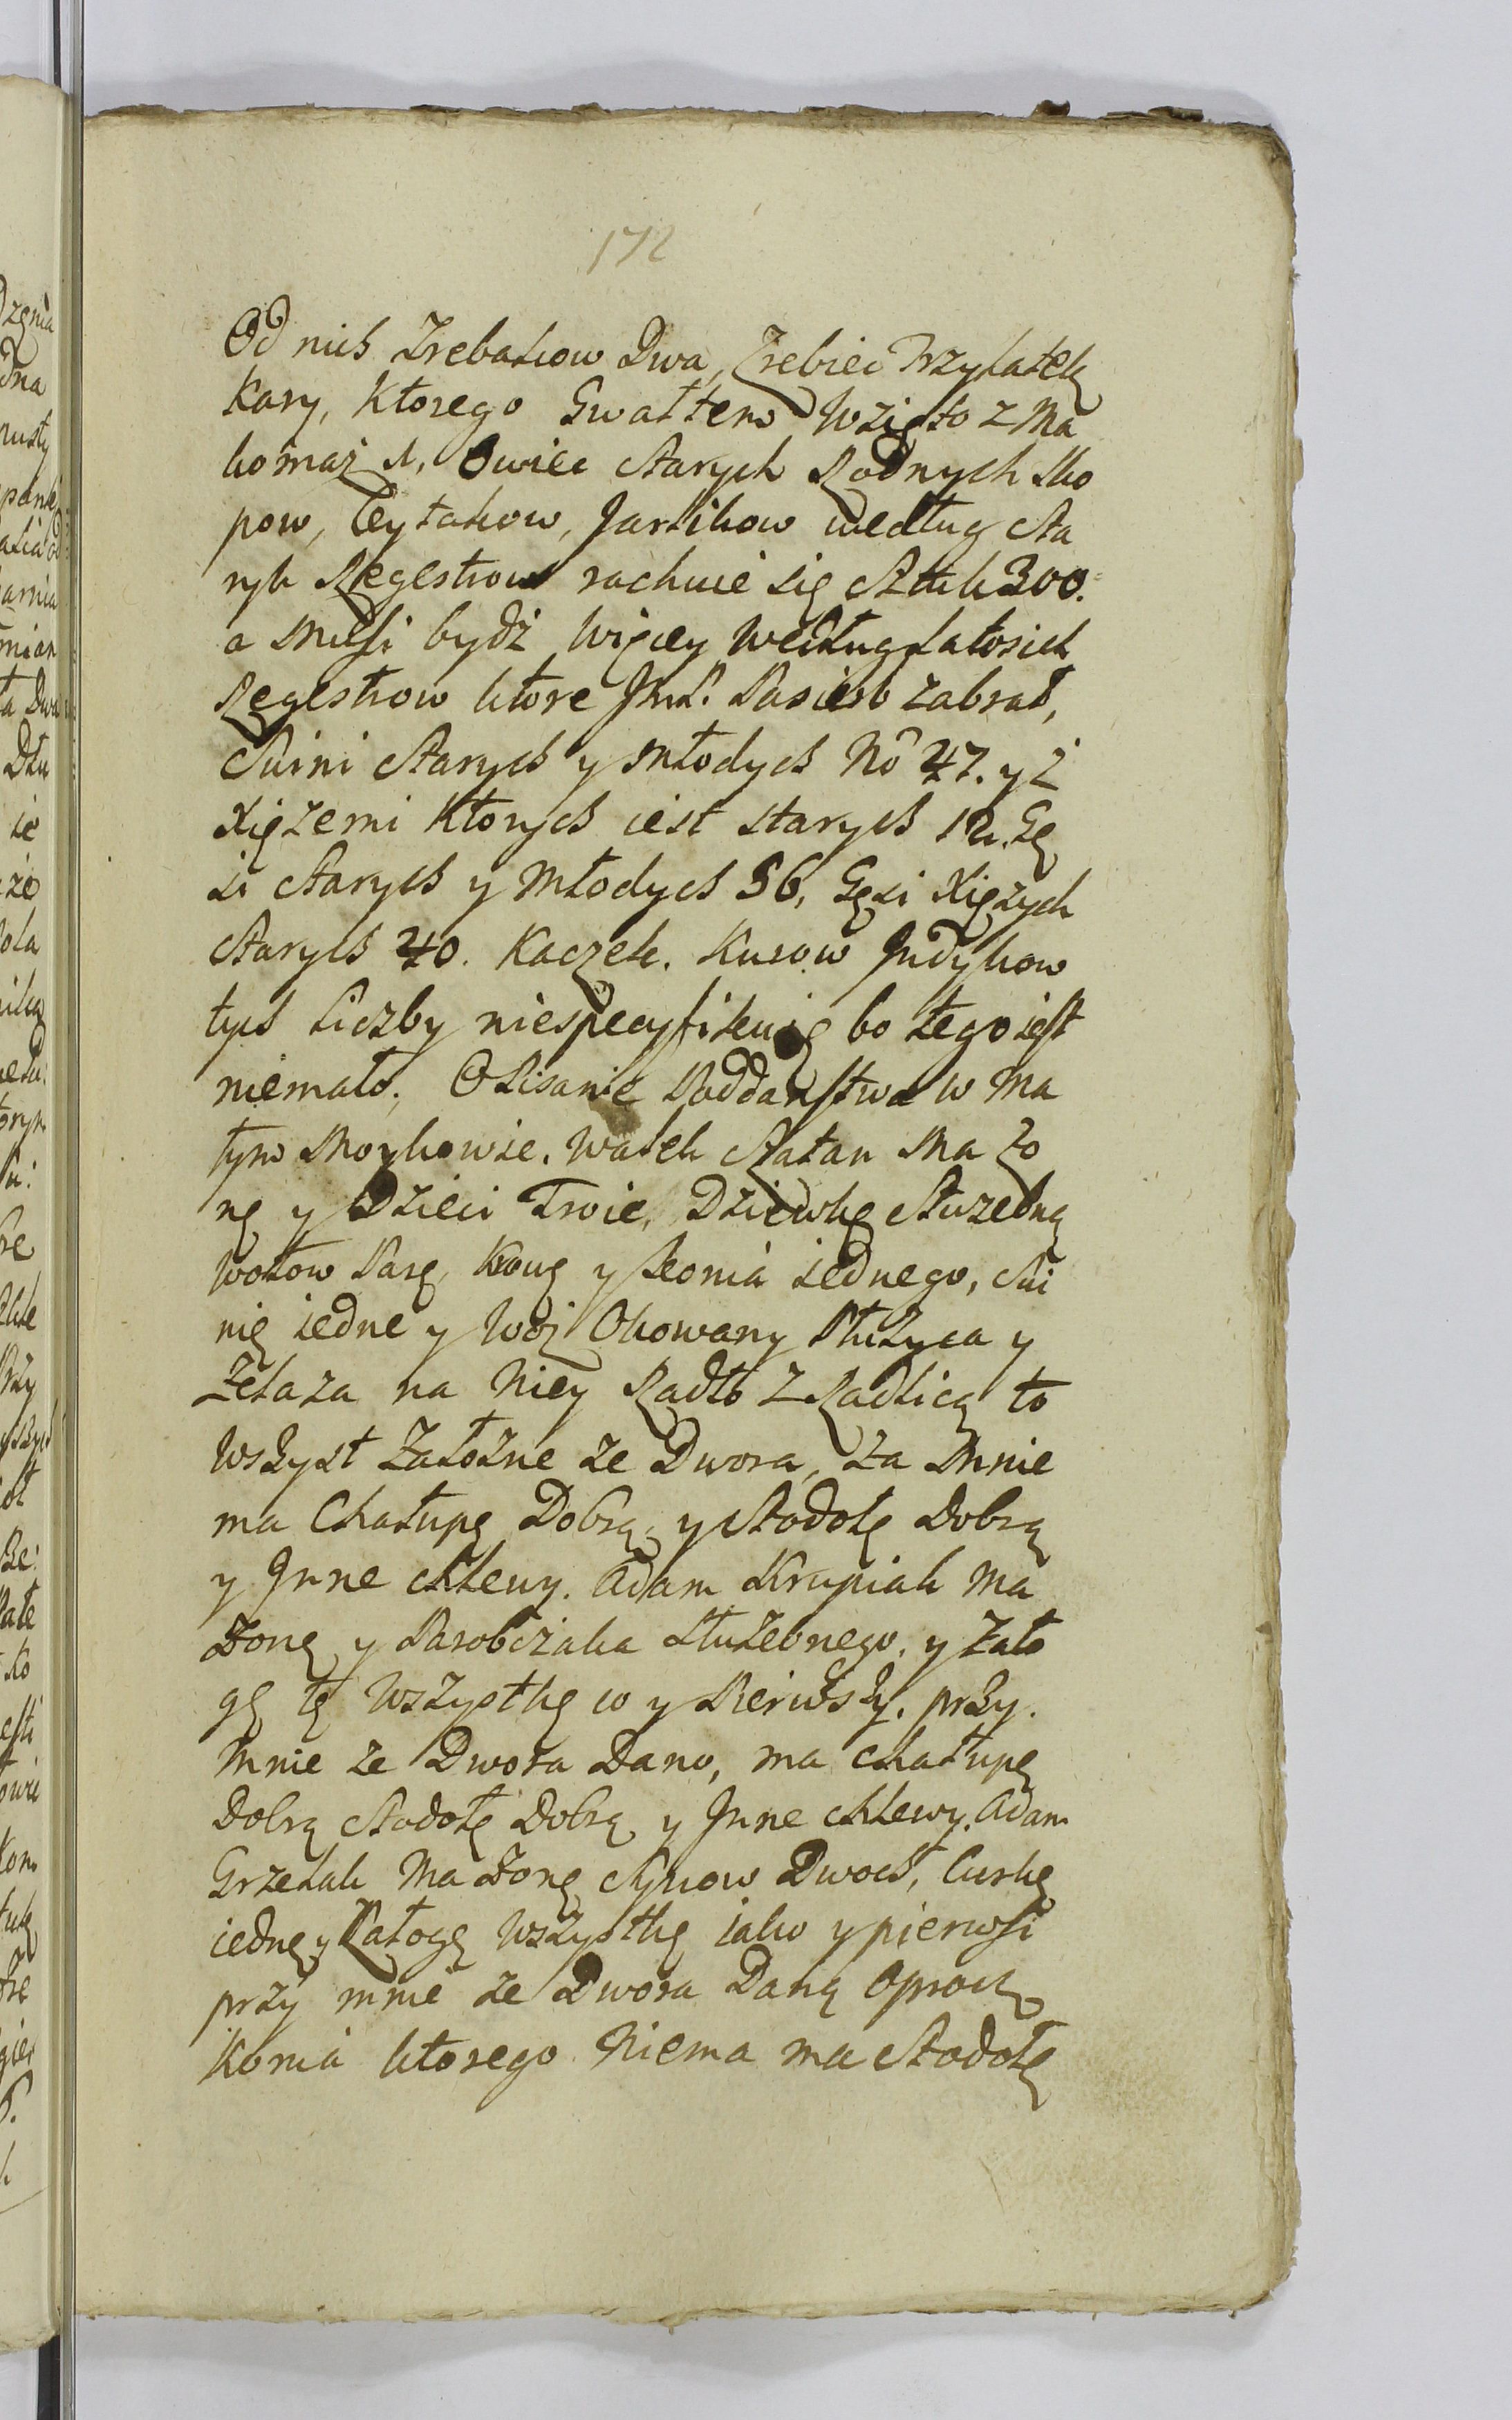 172
Od nich Zrebakow Dwa, Zrebiec Trzylatek
Kary, Ktorego Gwałtem Wzięto z Ma
komaz 1, Owiec Starych Rodnych Sko
pow, Ceytakow, Jarlikow według Sta
rych Regestrow rachuie się Sztuk 300.
a Musi bydż Więcey Według Łatosich
Regestrow ktore JmP. Pasierb Zabrał,
Swini Starych y Młodych No 47. y Z
Xiężemi Ktorych iest starych 12. Gę
si Starych y Młodych 56, Gęsi Xiężych
Starych 40. Kaczek. Kurow Jndykow
tych Liczby niespecyfikuię bo tego iest
niemało. Opisanie Poddaństwa w Ma
łym Moykowie. Walek Szatan Ma Żo
nę y Dzieci Troie, Dziewkę Służebną
Wołow Parę, Krowę y Konia iednego, Swi
nię iedne y Woz Okowany Płużyca y
Żelaza na Niey Radło Z Radlicą to
Wszyst Załozne ze Dwora, Za Mnie
ma Chałupę Dobrą, y Stodołę Dobrą
y Jnne Chlewy. Adam Krupiak Ma
Żonę y Parobczaka Służebnego, y Zało
gę tę Wszystkę co y Pierwszy. przy.
Mnie ze Dwora Dano, ma Chałupę
Dobrą Stodołę Dobrą y Jnne Chlewy. Adam
Grzelak Ma Żonę Synow Dwoch, Curkę
iednę y Załogę Wszystkę iako y pierwsi
przy mnie ze Dwora Daną Oprocz
Konia ktorego Niema ma Stodołę